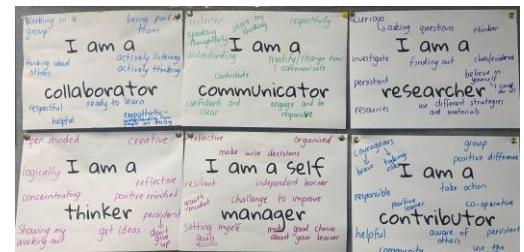 Working in a group
being part team
I am a
thinking about others
actively listening
actively thinking
collaborator
respectful
ready to learn
helpful
empathetic -
listener
share my thinking
respectfully
speaking thoughtfully
I am a
understanding
modify/change how I communicate
contribute
communicator
confident and clear
engage and be
curious
asking questions
thinker
I am a
investigate
finding out
persistent
believe in yourself
researcher
resources
use different strategies and materials
open minded
creative
I am a
logically
reflective
concentrating
positive mindset
thinker
persistent
Showing my working out
get ideas
don't give up
reflective
organised
make wise decisions
I am a self
resilient
independent learner
growth mindset
challenge to improve
manager
setting myself goals
good choices about your learner
courageous
group
brave
taking risks
positive difference
I am a
take action
responsible
positive learner
co-operative
contributor
helpful
aware of others
persistent
community
use the